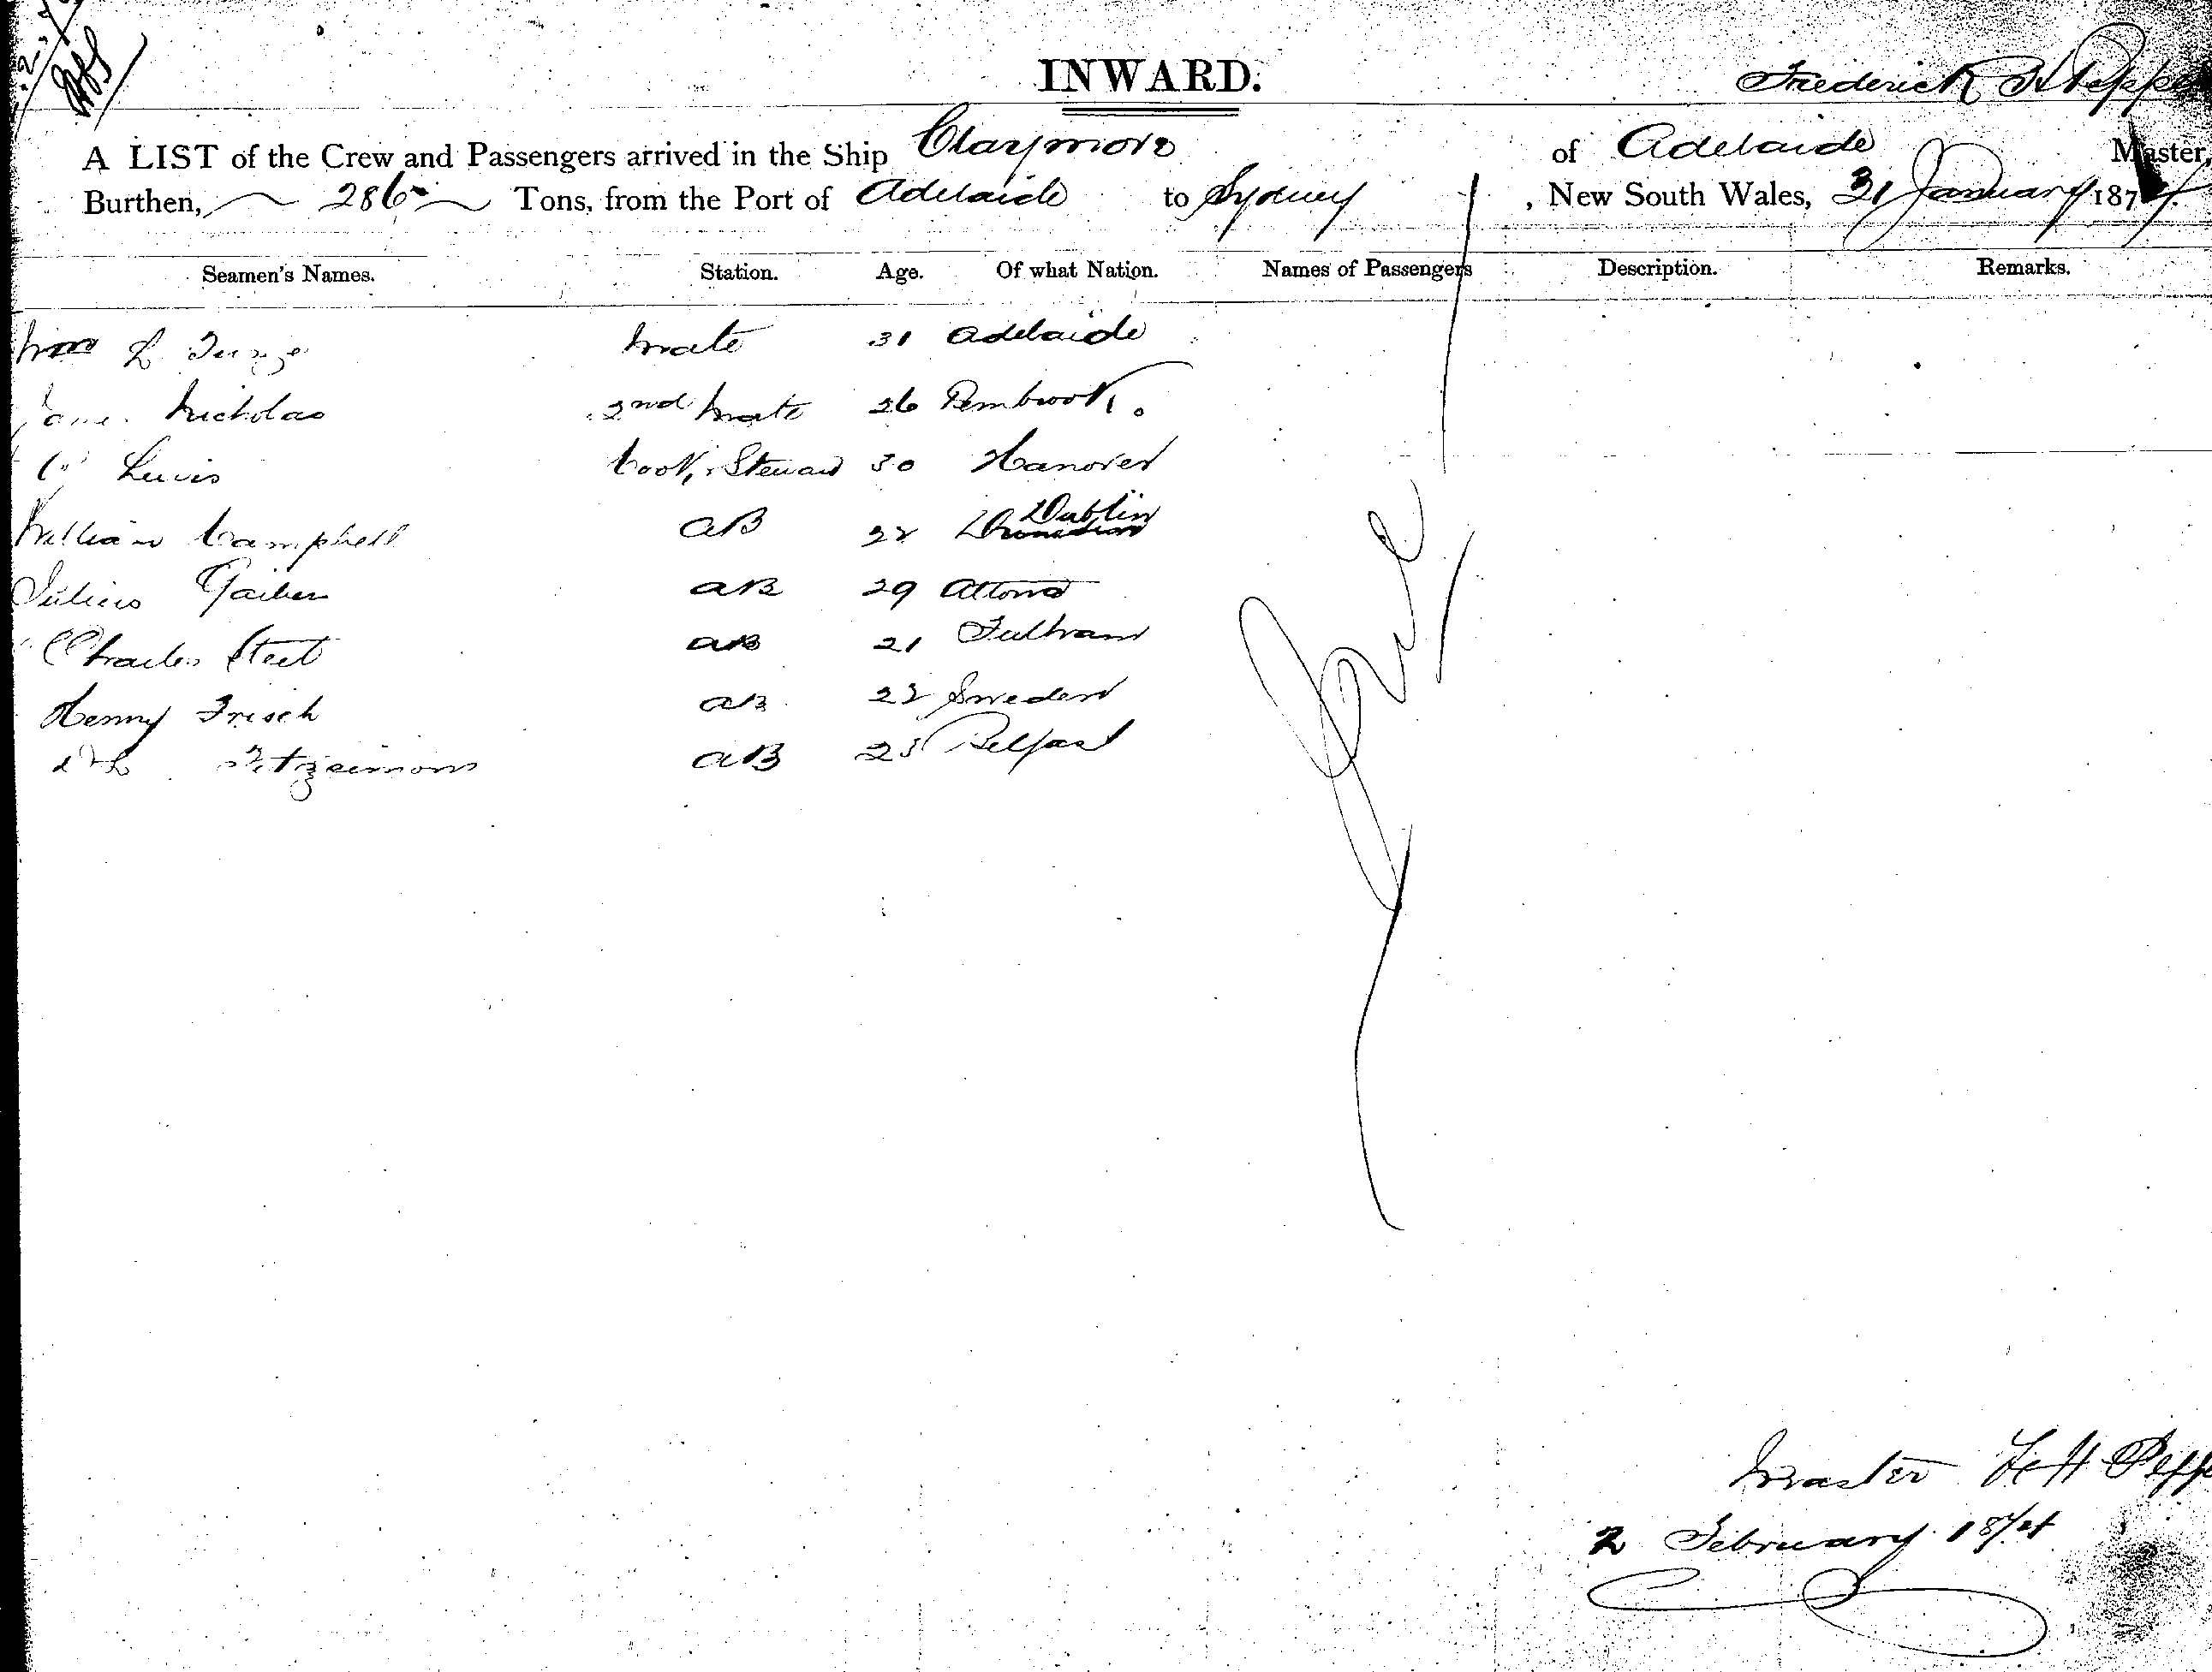 INWARD.
Frederick H Pepper
A LIST of the Crew and Passengers arrived in the Ship Claymore of Adelaide Master,
Burthen, 286 Tons, from the Port of Adelaide to Sydney, New South Wales, 31 January 1874
Seamen's Names. Station. Age. Of what Nation. Names of Passengers Description. Remarks.
Mate 31 Adelaide
Nicholas 2nd Mate 26 Pembrook
Lewis Cook, Steward 30 Hanover
William Campbell AB 22 Dublin
Julius AB 29 Altona
Charles Steet AB 21 Fulham
Henry Frisch AB 22 Sweden
Fitzsimons AB 25 Belfast
Master F H Peppe
2 February 1874